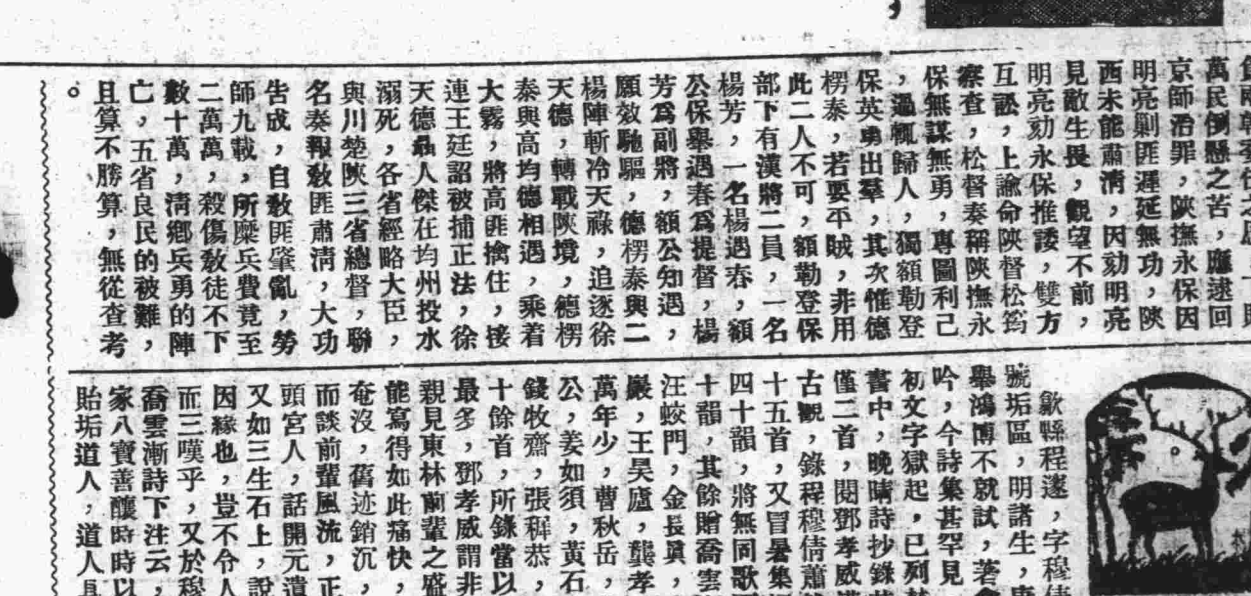 萬民倒懸之苦,應逮回
京師治罪,陝撫永保因
明亮剿匪遲延無功,陝
西未能肅清,因劾明亮
見敵生畏,觀望不前,
明亮劾永保推諉,雙方
互訟,上諭命陝督松筠
察查,松督奏稱陝撫永
保無謀無勇,專圖利己
,過輒歸人,獨額勒登
保英勇出羣,其次惟德
楞泰,若要平賊,非用
此二人不可,額勒登保
部下有漢將二員,一名
楊芳,一名楊遇春,額
公保舉遇春爲提督,楊
芳爲副將,額公知遇,
願效馳驅,德楞泰與二
楊陣斬冷天祿,追逐徐
天德,轉戰陝境,德楞
泰與高均德相遇,乘着
大霧,將高匪擒住,接
連王廷詔被捕正法,徐
天德人傑在均州投水
溺死,各省經略大臣,
與川楚陝三省總督,聯
名奏報敎匪肅清,大功
告成,自敎匪肇亂,勞
師九載,所糜兵費竟至
二萬萬,殺傷敎徒不下
數十萬,淸鄉兵勇的陣
亡,五省良民的被難,
且算不勝算,無從查考
。
歙縣程邃,字穆倩
號垢區,明諸生,康
舉鴻博不就試,著會
吟,今詩集甚罕見
初文字獄起,已列禁
書中,晚晴詩抄錄其
僅二首,閱鄧孝威
古觀,錄程穆倩蕭
十五首,又冒暑集
四十韻,將無同歌
十韻,其餘贈喬雲
汪蛟門,金長眞,
嚴,王昊廬,龔孝
萬年少,曹秋岳,
公,姜如須,黃石
錢牧齋,張穉恭,
十餘首,所錄當以
最多,鄧孝威謂非
親見東林前輩之盛
能寫得如此痛快,
奄沒,舊迹銷沉,
而談前輩風流,正
頭宮人,話開元遺
又如三生石上,說
因緣也,豈不令人
而三嘆乎,又於穆
喬雲漸詩下注云,
家八寶善釀時時以
貽垢道人,道人真